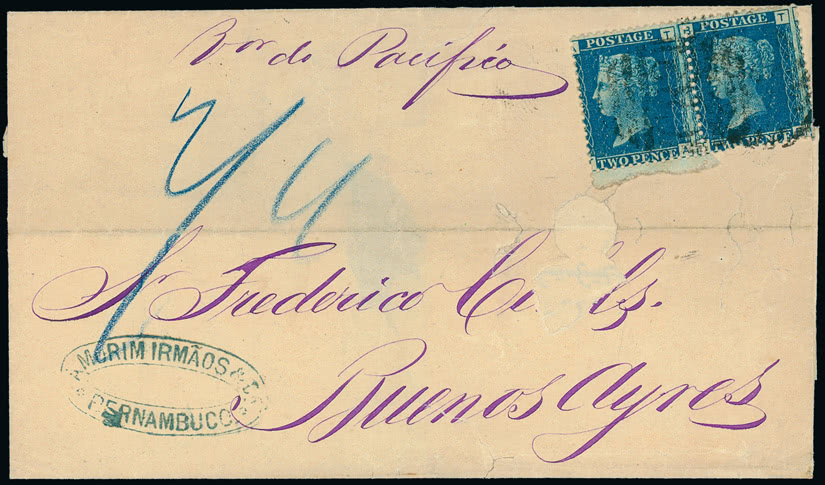 Vor do Pacifico
POSTAGE T POSTAGE T
TWO PENCE TWO PENCE
4
Sr Frederico
AMORIM IRMÃOS &
PERNAMBUCO
Buenos Ayres